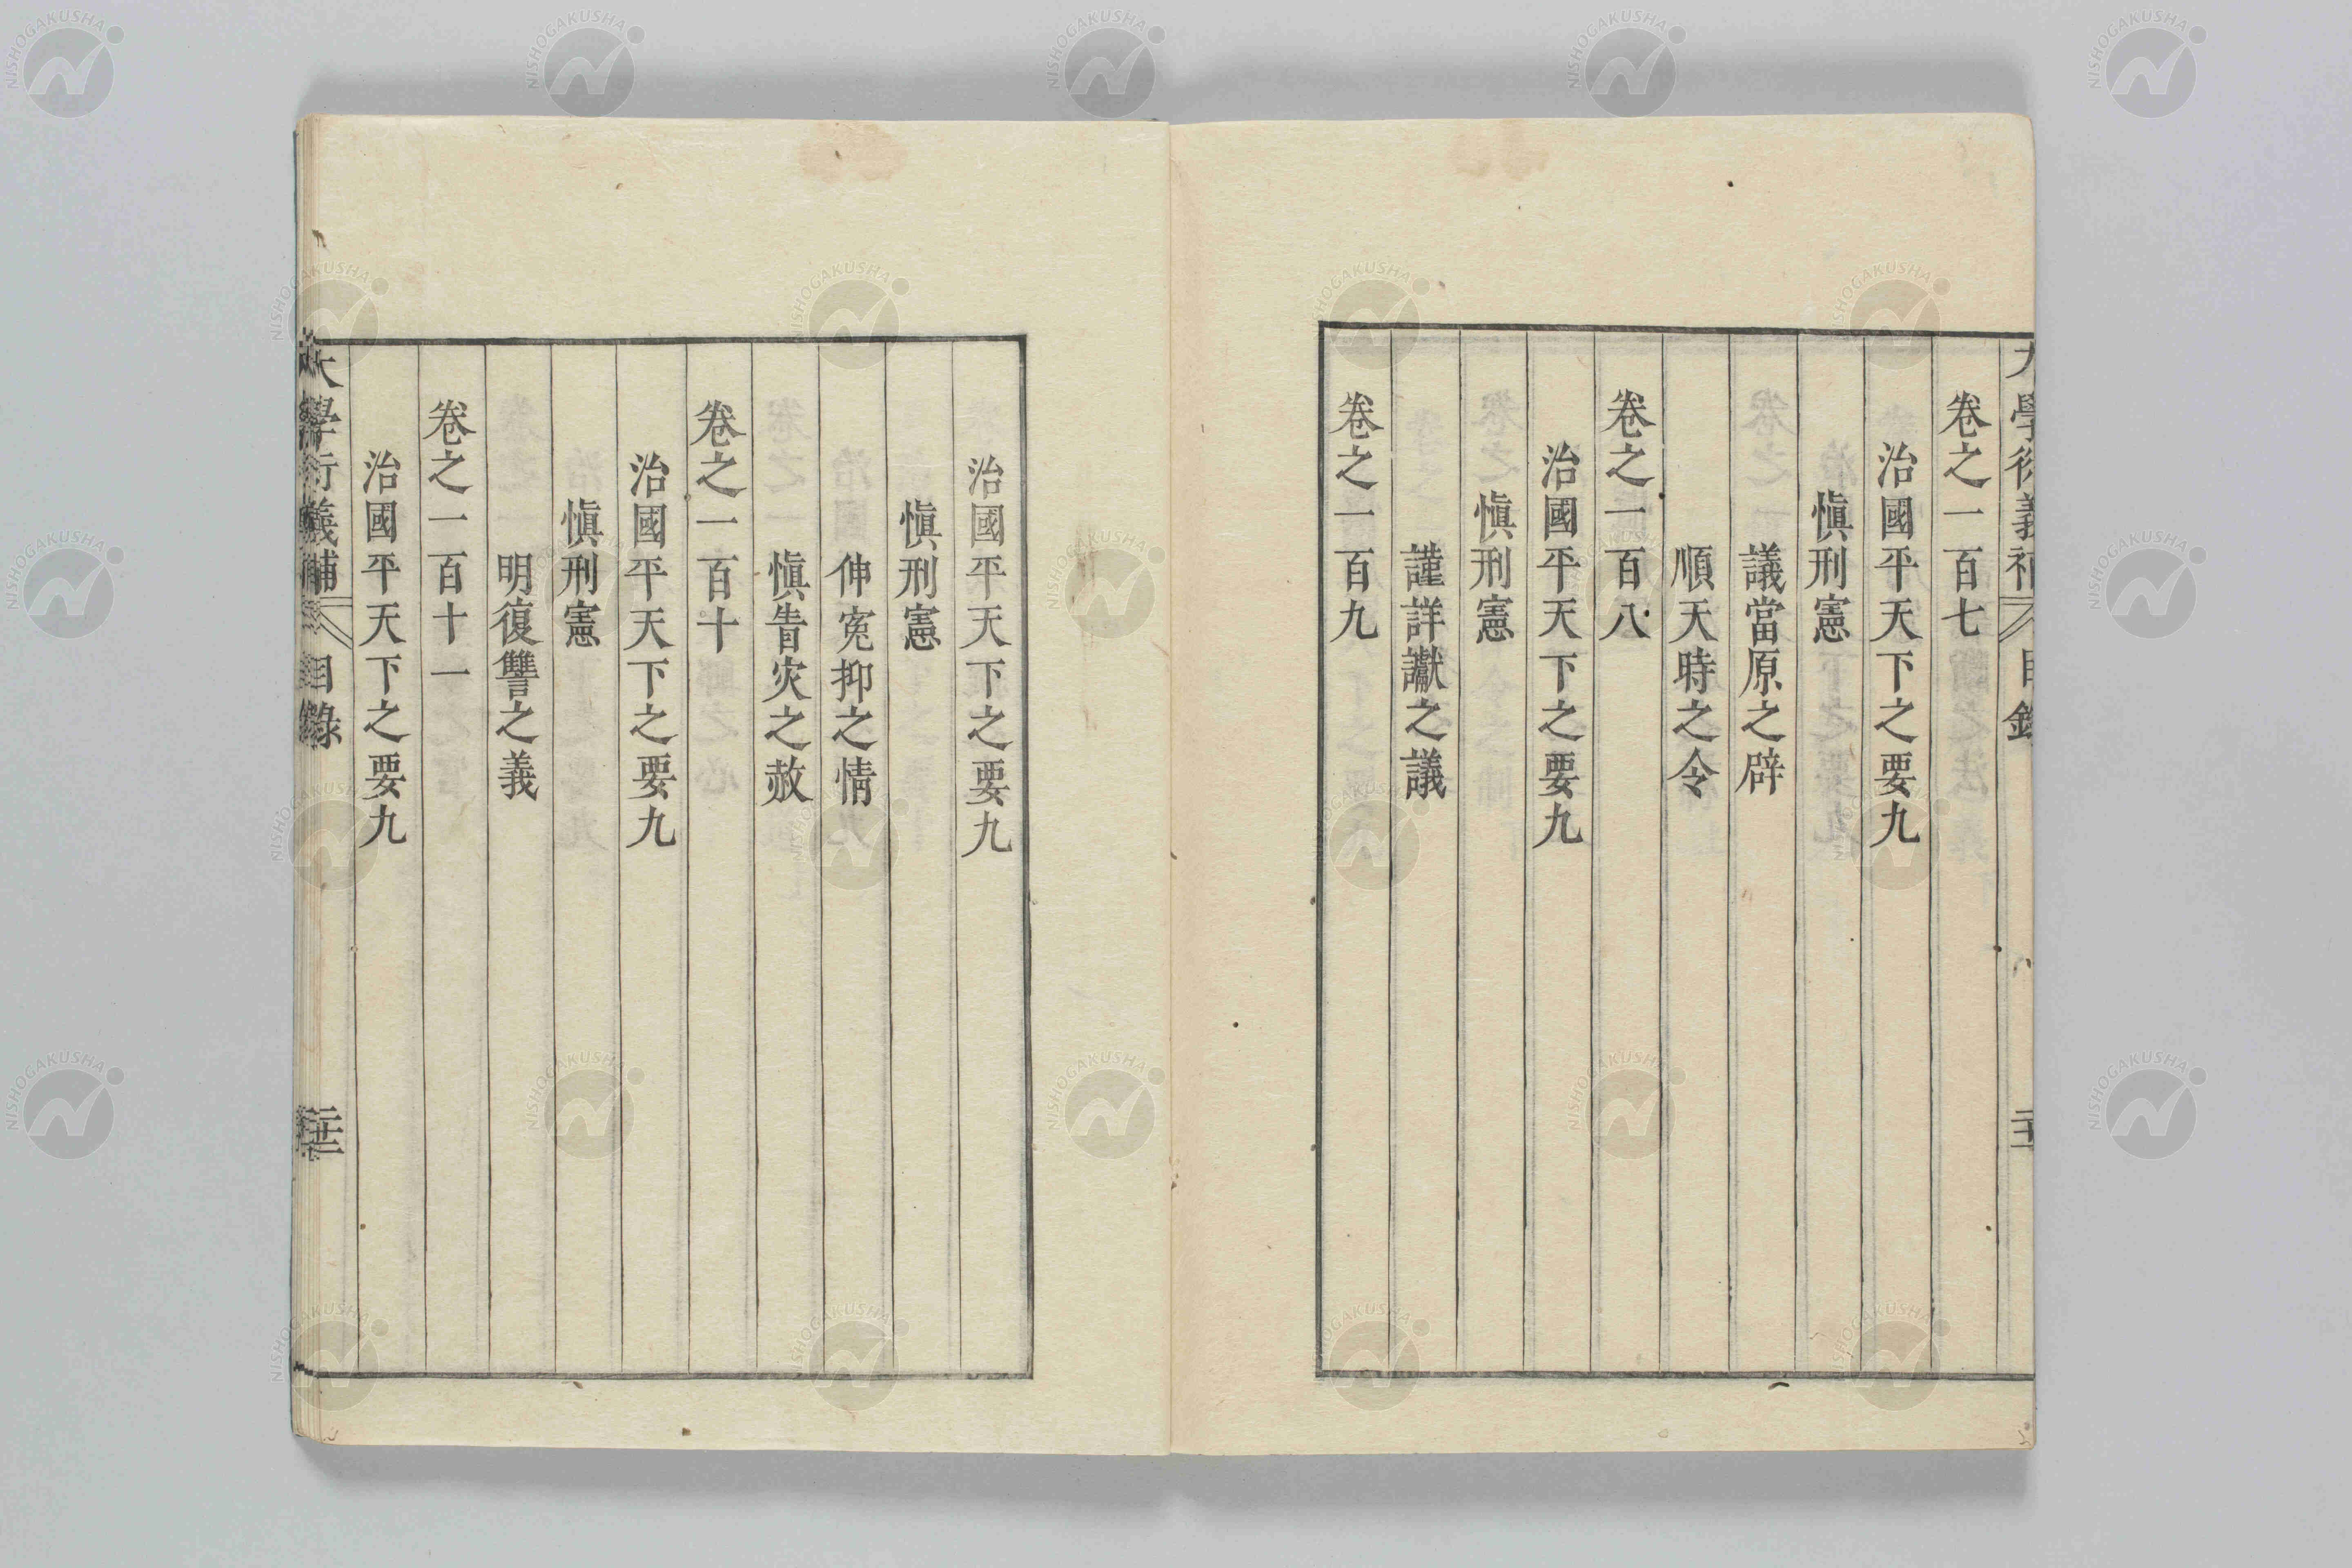 卷之一百七
治國平天下之要九
愼刑憲
議當原之辟
順天時之令
卷之一百八
治國平天下之要九
愼刑憲
謹詳讞之議
卷之一百九
治國平天下之要九
愼刑憲
伸寃抑之情
愼眚灾之赦
卷之一百十
治國平天下之要九
愼刑憲
明復讐之義
卷之一百十一
治國平天下之要九
大學衍義補 目錄
NISHOGAKUSHA